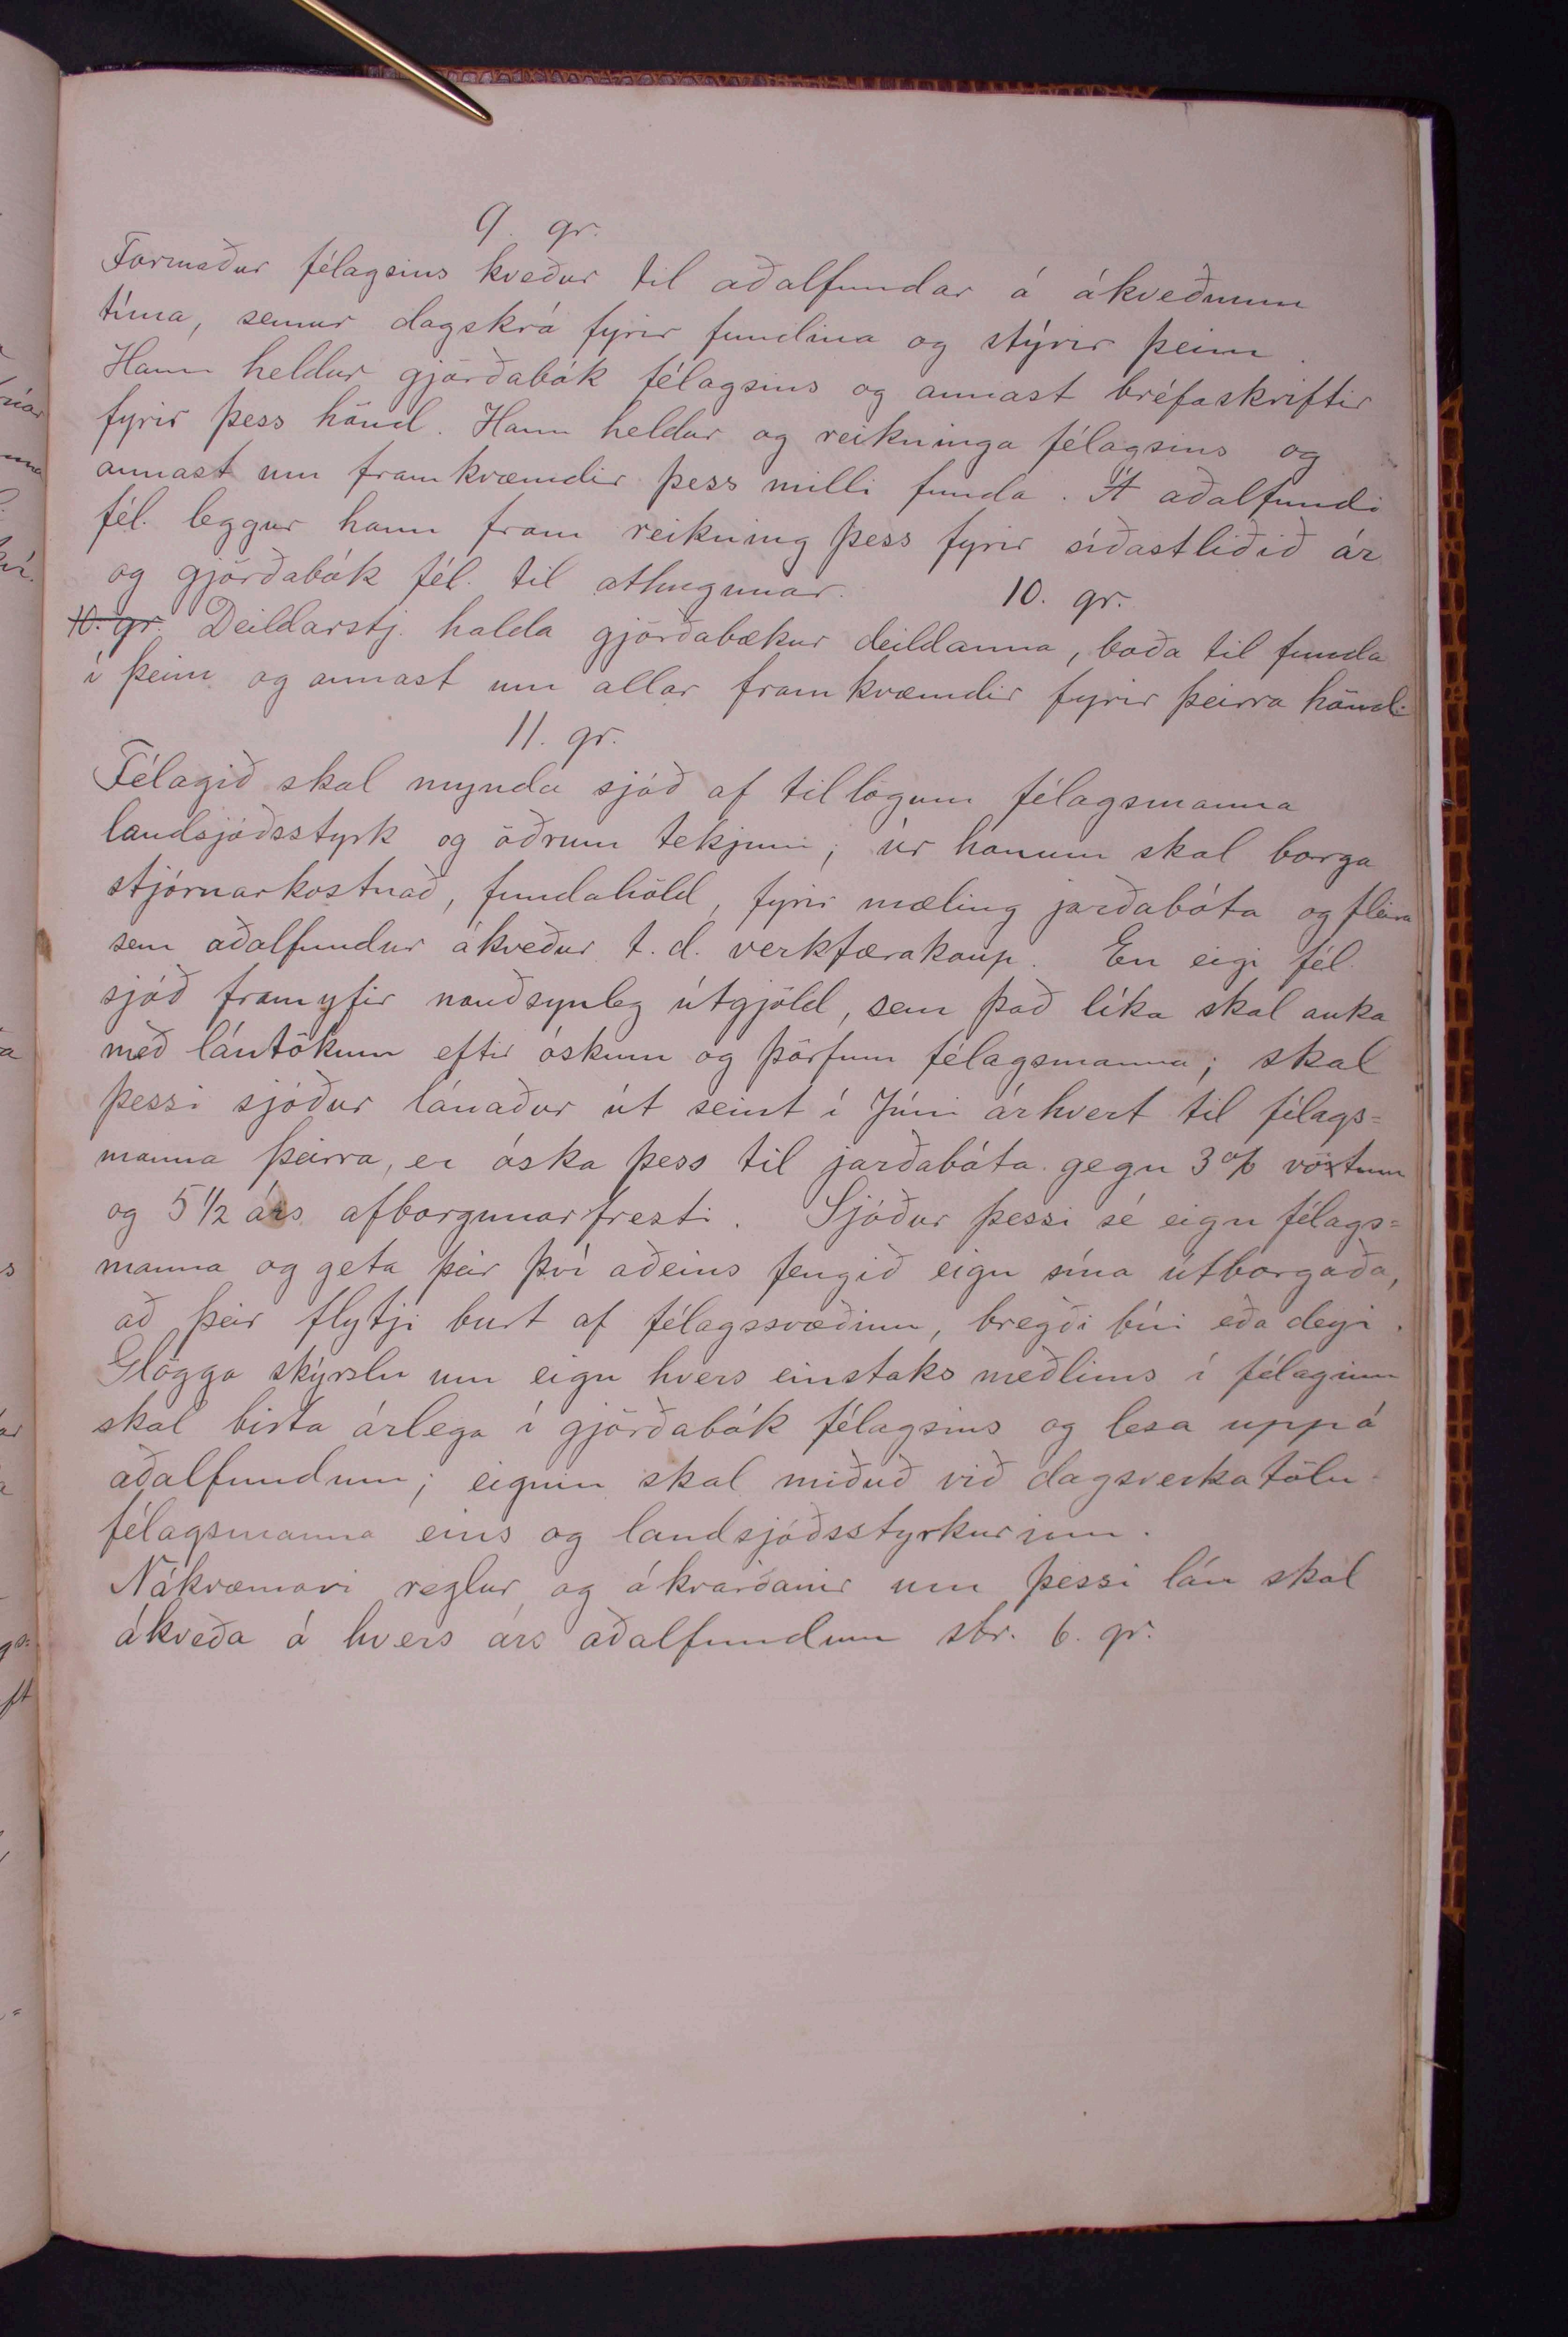 9. gr.
Formaður félagsins kveður til aðalfundar á ákveðnum
tíma, semur dagskrá fyrir fundina og stýrir þeim.
Hann heldur gjörðabók félagsins og annast bréfaskriftir
fyrir þess hönd. Hann heldur og reikninga félagsins og
annast um framkvæmdir þess milli funda. Á aðalfundi
fél. leggur hann fram reikning þess fyrir síðastliðið ár
og gjörðabók fél. til athugunar. 10. gr.
10. gr. Deildarstj. halda gjörðabækur deildanna, boða til funda
í þeim og annast um allar framkvæmdir fyrir þeirra hönd.
11. gr.
Félagið skal mynda sjóð af tillögum félagsmanna
landsjóðsstyrk og öðrum tekjum; úr honum skal borga
stjórnarkostnað, fundahöld, fyrir mæling jarðabóta og fleira
sem aðalfundur ákveður t.d. verkfærakaup. En eigi fél.
sjóð framyfir nauðsynleg útgjöld, sem það líka skal auka
með lántökum eftir óskum og þörfum félagsmanna; skal
þessi sjóður lánaður út seint í Júni árhvert til félags=
manna þeirra, er óska þess til jarðabóta gegn 3% vöxtum
og 5 1/2 árs afborgunarfresti. Sjóður þessi sé eign félags=
manna og geta þeir því aðeins fengið eign sína útborgaða,
að þeir flytji burt af félagssvæðinu, bregði búi eða deyi.
Glögga skýrslu um eign hvers einstaks meðlims í félaginu
skal birta árlega í gjörðabók félagsins og lesa upp á
aðalfundum; eignin skal miðuð við dagsverkatölu
félagsmanna eins og landsjóðsstyrkurinn.
Nákvæmari reglur og ákvarðanir um þessi lán skal
ákveða á hvers árs aðalfundum sbr. 6. gr.